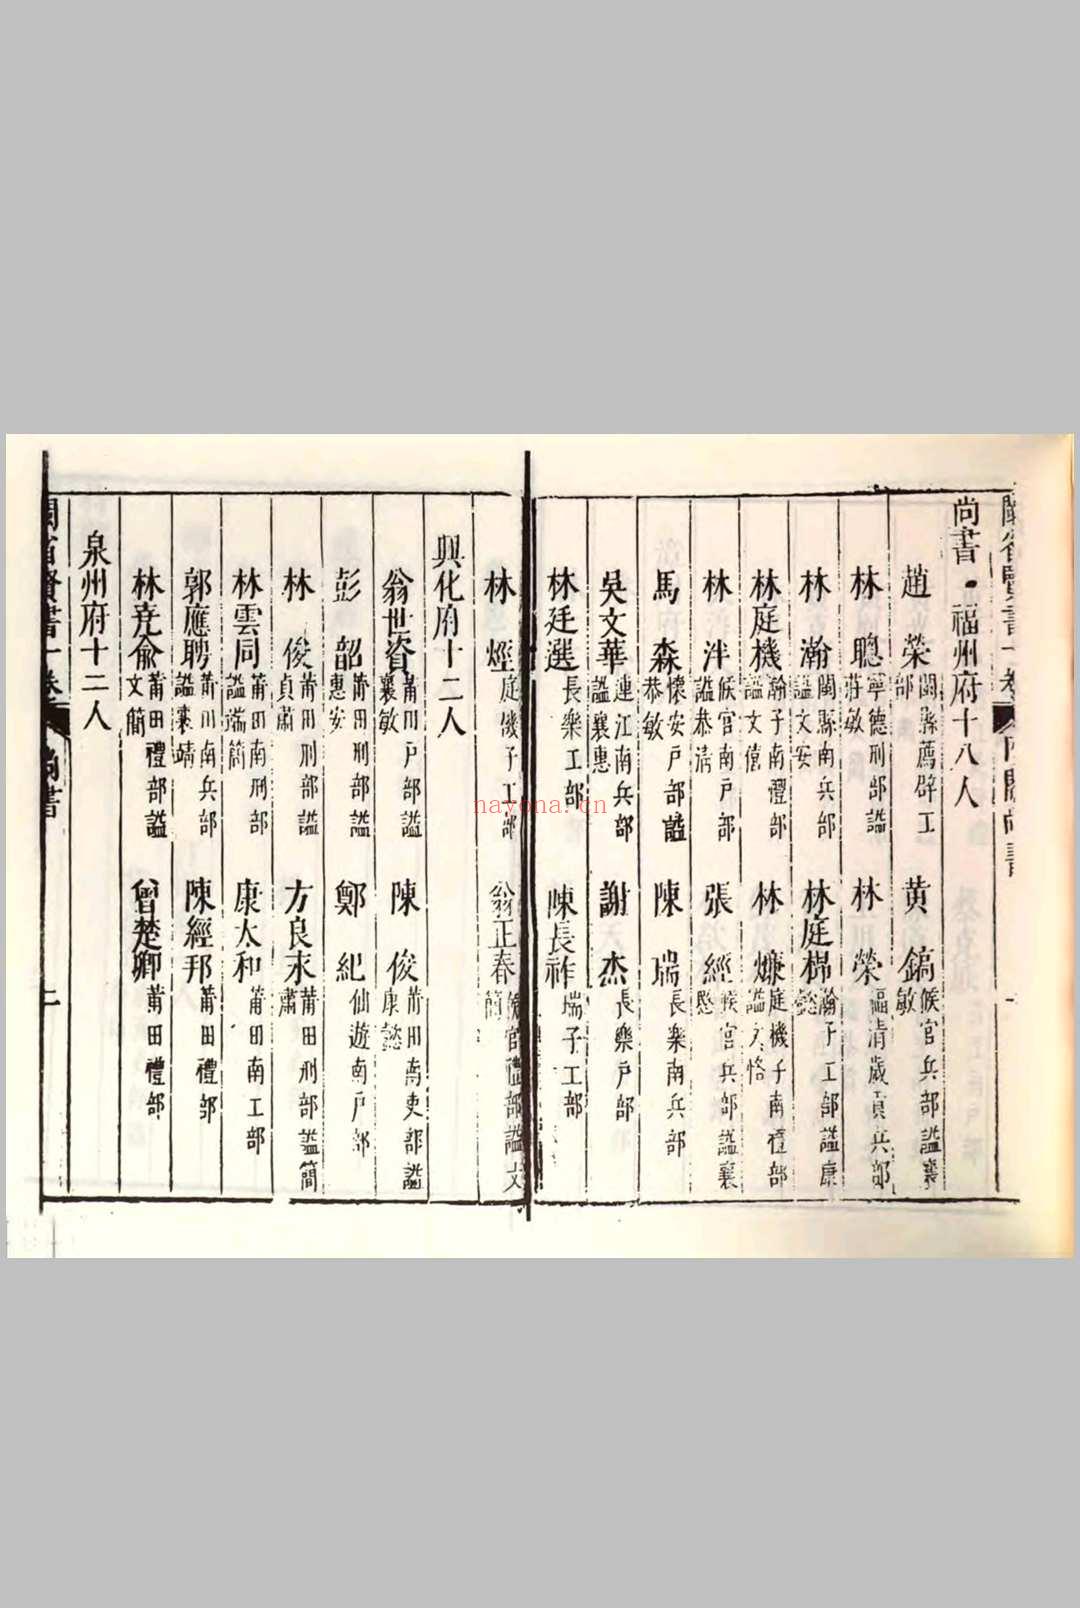 尚書 福州府十八人
趙榮 閩縣薦辟工部 黃鎬 候官兵部謚襄敏
林聰 寧德刑部謚莊敏 林榮 福清歲貢兵部
林瀚 閩縣南兵部謚文安 林庭㭿 瀚子工部謚康懿
林庭機 瀚子南禮部謚文僖 林燫 庭機子南禮部謚文恪
林泮 候官南戶部謚恭清 張經 候官兵部謚襄愍
馬森 懷安戶部謚恭敏 陳瑞 長樂南兵部
吳文華 連江南兵部謚襄惠 謝杰 長樂戶部
林廷選 長樂工部 陳長祚 瑞子工部
林烴 庭機子工部 翁正春 候官禮部謚文簡
興化府十二人
翁世資 莆田戶部謚襄敏 陳俊 莆田南吏部謚康懿
彭韶 莆田刑部謚惠安 鄭紀 仙遊南戶部
林俊 莆田刑部謚貞肅 方良永 莆田刑部謚簡肅
林雲同 莆田南刑部謚端簡 康太和 莆田南工部
郭應聘 莆田南兵部謚襄靖 陳經邦 莆田禮部
林堯俞 莆田禮部謚文簡 曾楚卿 莆田禮部
泉州府十二人
nayona.cn